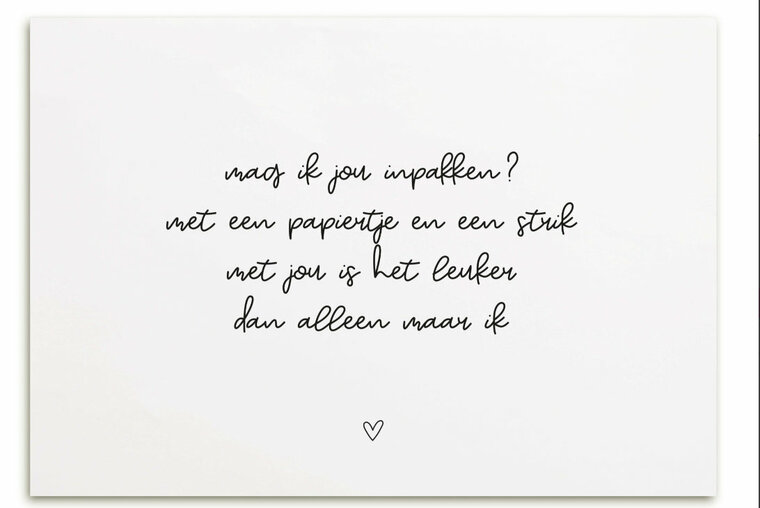 mag ik jou inpakken?
met een papiertje en een strik
met jou is het leuker
dan alleen maar ik